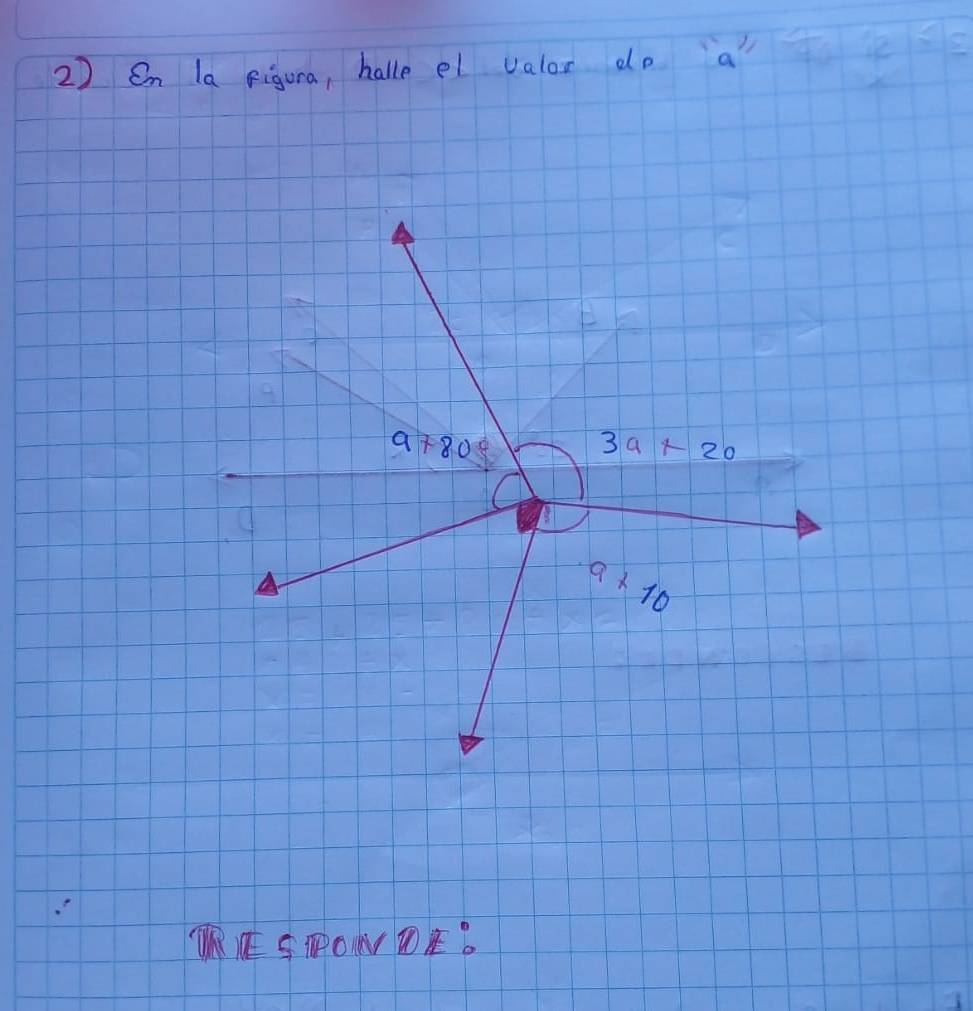 2) En la figura, halle el valor de "a"
a+80°
3a + 20
a + 10
RESPONDE: